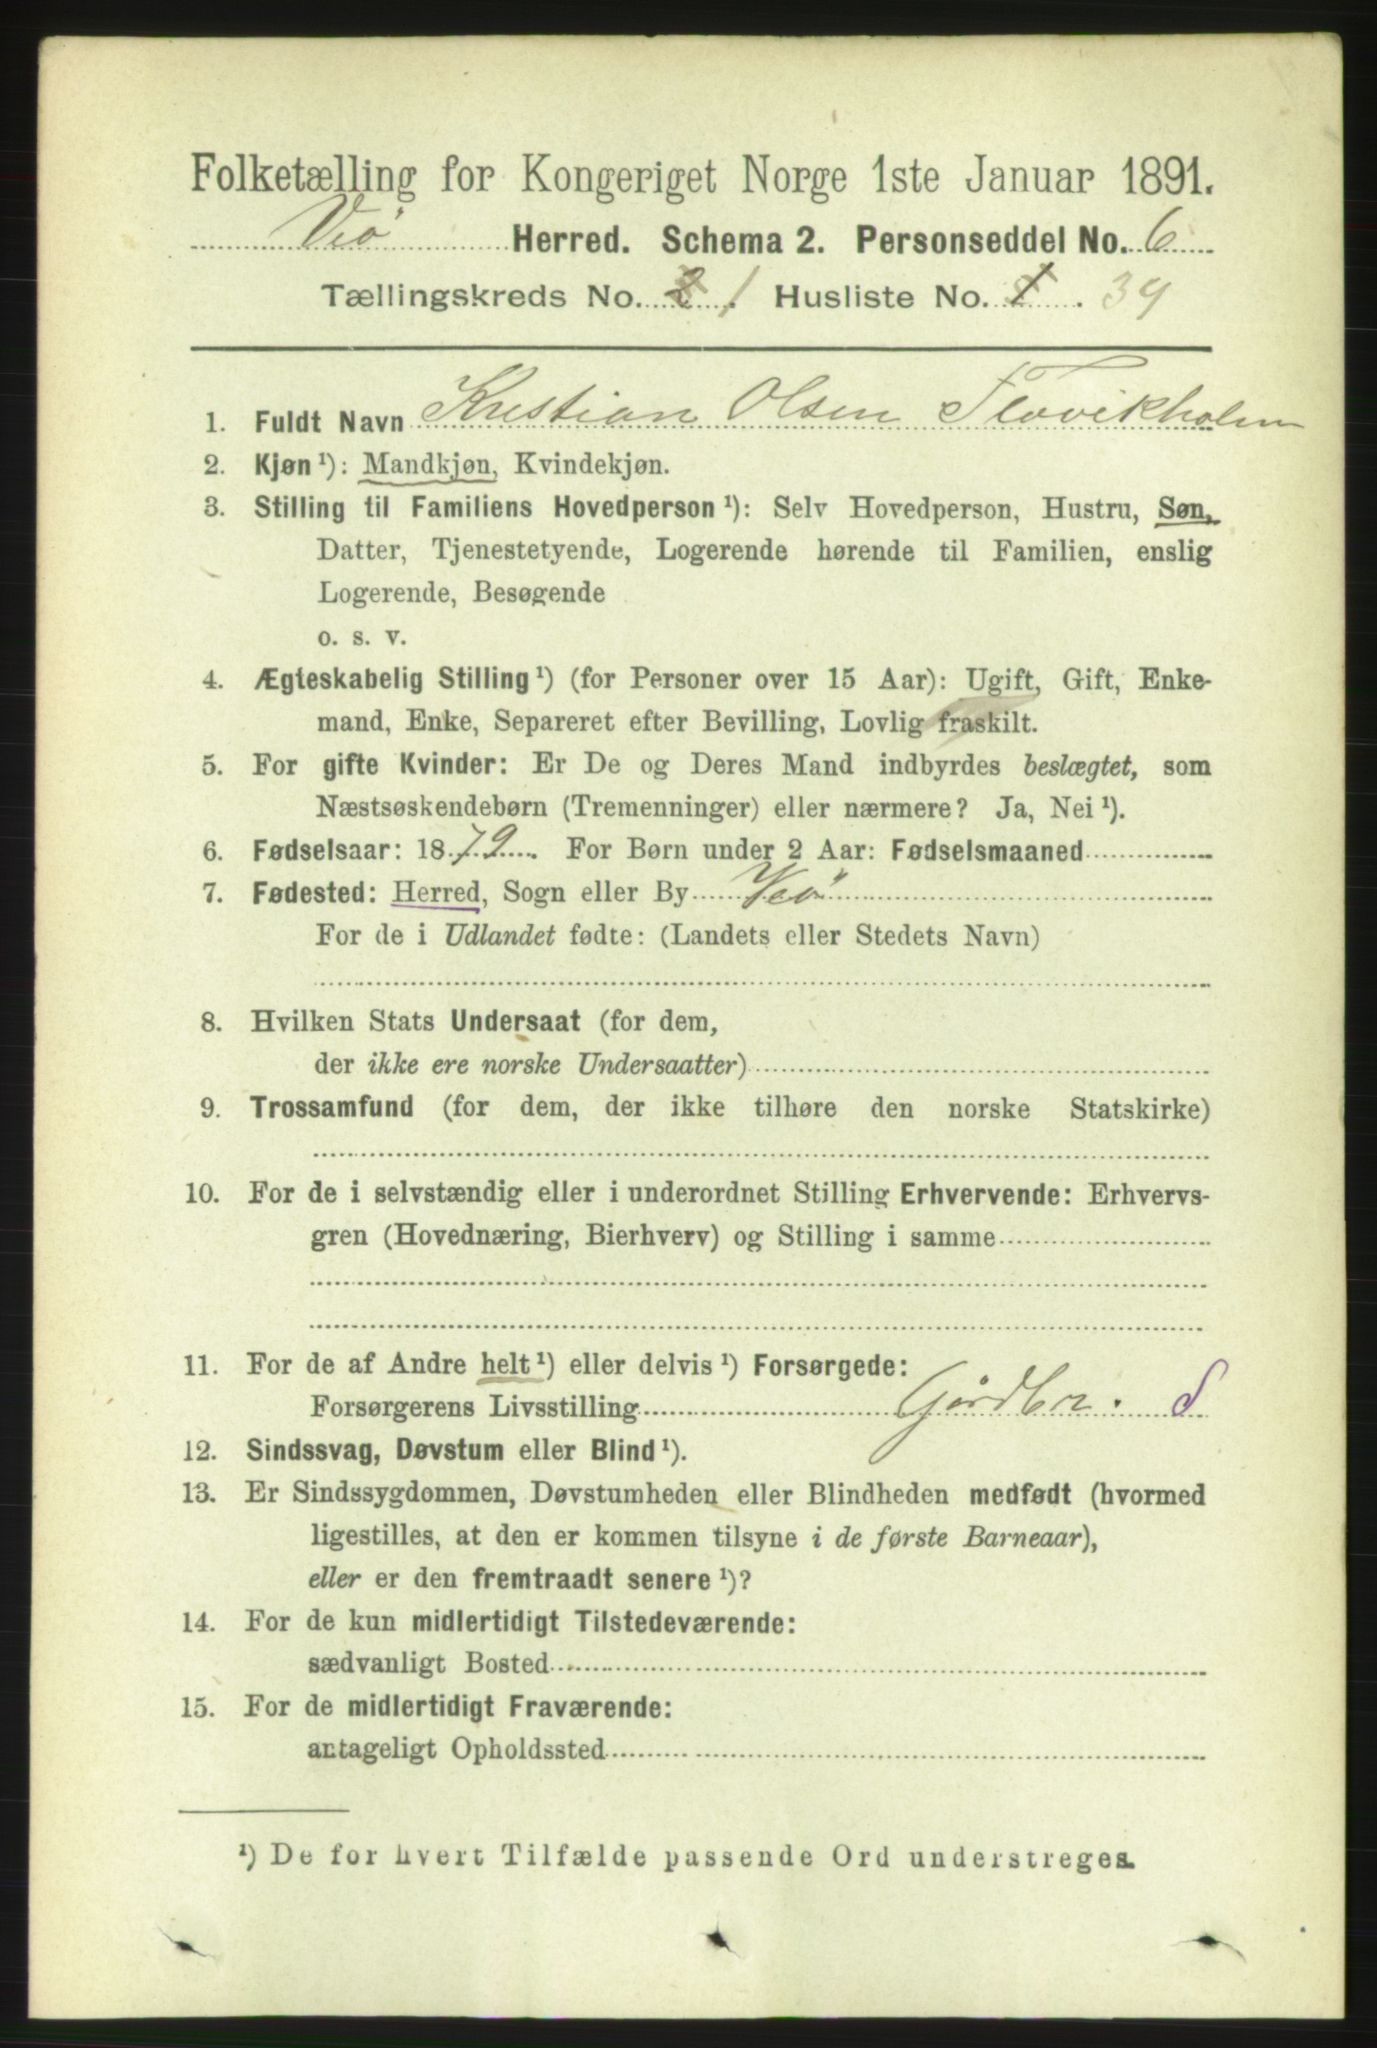 Folketælling for Kongeriget Norge 1ste Januar 1891.
Veø Herred. Schema 2. Personseddel No. 6
Tællingskreds No. 2 1 Husliste No. 1. 39
1. Fuldt Navn Kristian Olsen Flovikholm
2. Kjøn ¹): Mandkjøn, Kvindekjøn.
3. Stilling til Familiens Hovedperson ¹): Selv Hovedperson, Hustru, Søn,
Datter, Tjenestetyende, Logerende hørende til Familien, enslig
Logerende, Besøgende
o. s. v.
4. Ægteskabelig Stilling ¹) (for Personer over 15 Aar): Ugift, Gift, Enke-
mand, Enke, Separeret efter Bevilling, Lovlig fraskilt.
5. For gifte Kvinder: Er De og Deres Mand indbyrdes beslægtet, som
Næstsøskendebørn (Tremenninger) eller nærmere? Ja, Nei ¹).
6. Fødselsaar: 1879. For Børn under 2 Aar: Fødselsmaaned
7. Fødested: Herred, Sogn eller By Veø
For de i Udlandet fødte: (Landets eller Stedets Navn)
8. Hvilken Stats Undersaat (for dem,
der ikke ere norske Undersaatter)
9. Trossamfund (for dem, der ikke tilhøre den norske Statskirke)
10. For de i selvstændig eller i underordnet Stilling Erhvervende: Erhvervs-
gren (Hovednæring, Bierhverv) og Stilling i samme
11. For de af Andre helt ¹) eller delvis ¹) Forsørgede:
Forsørgerens Livsstilling Gårdbr. S
12. Sindssvag, Døvstum eller Blind ¹).
13. Er Sindssygdommen, Døvstumheden eller Blindheden medfødt (hvormed
ligestilles, at den er kommen tilsyne i de første Barneaar),
eller er den fremtraadt senere ¹)?
14. For de kun midlertidigt Tilstedeværende:
sædvanligt Bosted
15. For de midlertidigt Fraværende:
antageligt Opholdssted
¹) De for hvert Tilfælde passende Ord understreges.